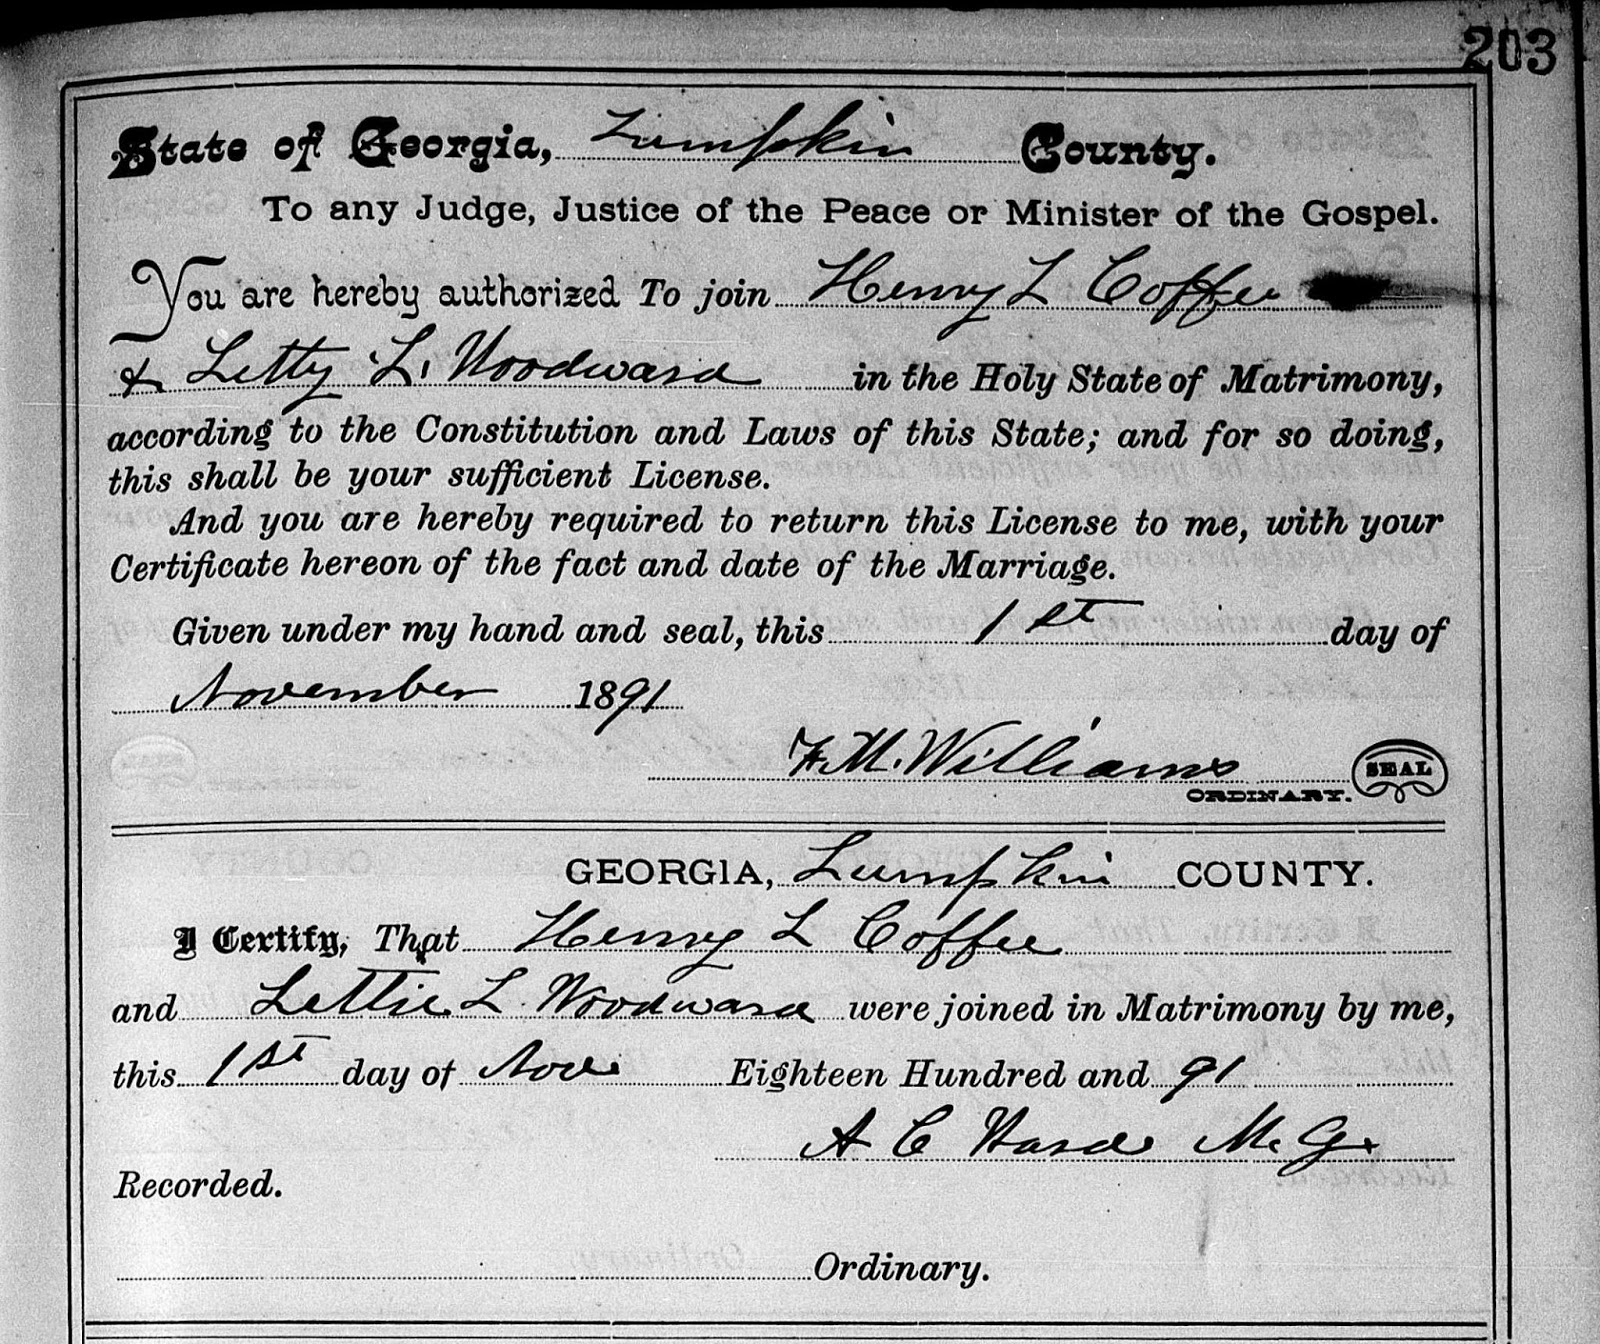 203
State of Georgia, Lumpkin County.
To any Judge, Justice of the Peace or Minister of the Gospel.
You are hereby authorized To join Henry L Coffee
& Letty L. Woodward in the Holy State of Matrimony,
according to the Constitution and Laws of this State; and for so doing,
this shall be your sufficient License.
And you are hereby required to return this License to me, with your
Certificate hereon of the fact and date of the Marriage.
Given under my hand and seal, this 1st day of
November 1891
F. M. Williams SEAL
ORDINARY.
GEORGIA, Lumpkin COUNTY.
I Certify, That Henry L Coffee
and Lettie L. Woodward were joined in Matrimony by me,
this 1st day of Nov Eighteen Hundred and 91
A C M. G.
Recorded.
Ordinary.